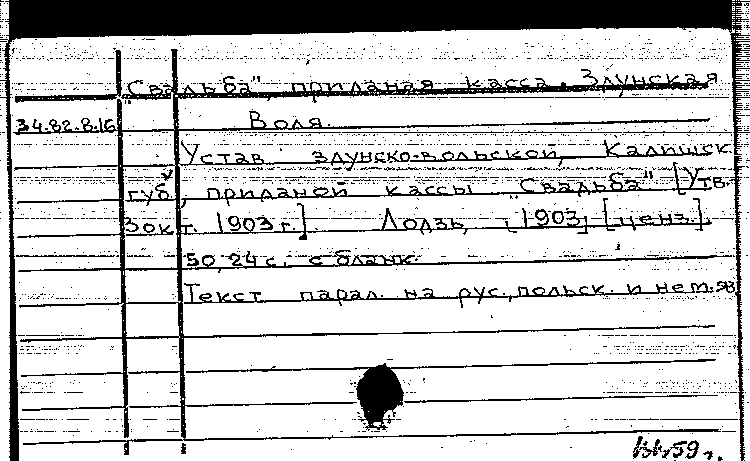 "Свадьба", приданая касса. Здунская
34.82.8.16 Воля.
Устав здунско-вольской, Калишск.
губ., приданой кассы "Свадьба" [Утв.
3 окт. 1903 г.]. Лодзь, [1903] [ценз.].
50, 24 с. с бланк.
Текст парал. на рус., польск. и нем. яз.